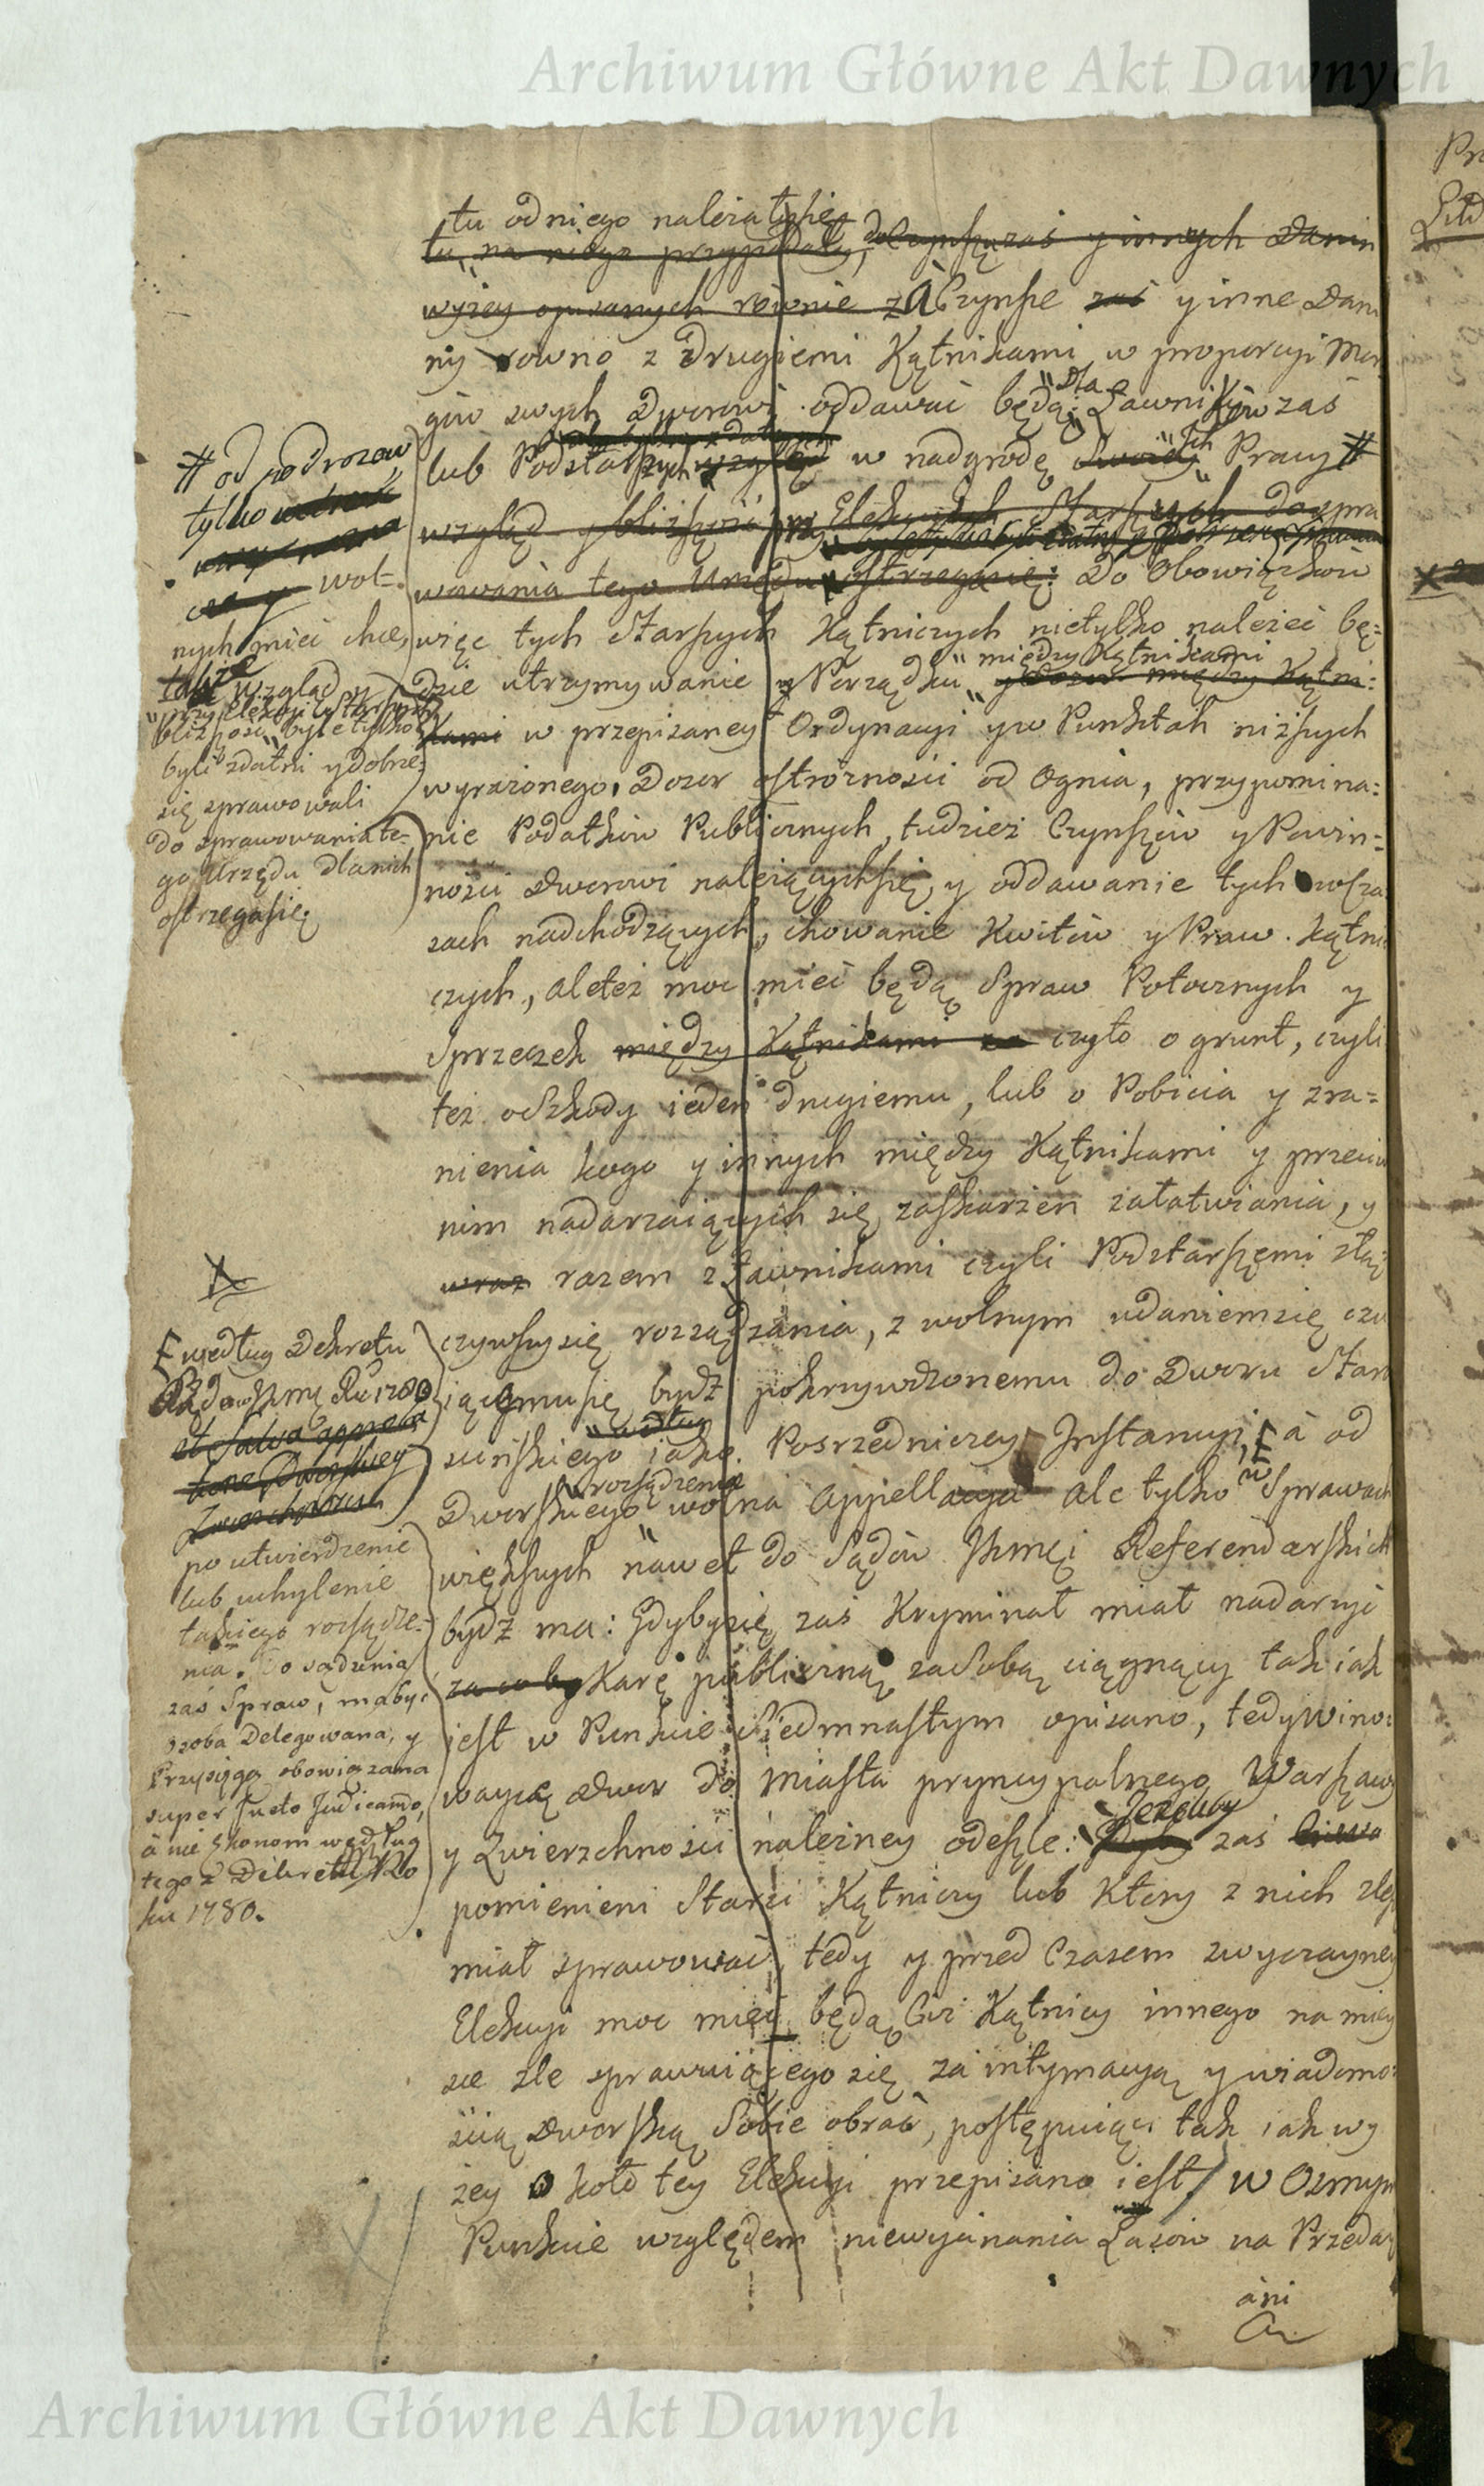 Archiwum Główne Akt Dawnych
tu od niego należałysię
tu na niego przypadały, do Czynszu zaś y innych Danin
wyżey opisanych równie z A Czynsze zaś y inne Dani
ny rowno z drugiemi Kątnikami w proporcyi Mor
gów swych Dworowi oddawać będą: Dla Ławników zaś
lub Podstarszych względ w nadgrodę swoiey Ich Pracy #
wzgląd y bliższość przy Elekcyach Starszych do spra
wowania tego Urzędu ostrzegasię: Do Obowiązków
więc tych Starszych Kątniczych nietylko należeć bę=
dzie utrzymywanie y Porządku między Kątnikami y Dozor między Kątni=
kami w przepisaney Ordynacyi y w Punktah niższych
wyrażonego, Dozor ostrożności od Ognia, przypomina=
nie Podatków Publicznych, tudzież Czynszów y Powin=
ności Dworowi należącychsię, y oddawanie tych w Cza
sach nadchodzących, chowanie Kwitów y Praw Kątni
czych, aleteż moc mieć będą Spraw Potocznych y
Sprzeczek między Kątnikami za czyto o grunt, czyli
też o Szkody ieden drugiemu, lub o Pobicia y zra=
nienia kogo y innych między Kątnikami y przeciw
nim nadarzaiących się zaskarżeń załatwiania, y
wraz razem z Ławnikami czyli Podstarszemi złą=
czywszysię rozsądzania, z wolnym udaniemsię czu
iącemusię bydź pokrzywdzonemu do Dworu Staro
ścińskiego iako Posrzedniczey Instancyi, à od
Dworskiego rozsądzenia wolna Appellacya ale tylko w Sprawach
większych nawet do Sądów JKmci Referendarskich
bydź ma: Gdybysię zaś Kryminał miał nadarzyć
za co by Karę publiczną zasobą ciągnący tak iak
jest w Punkcie Siedmnastym opisano, tedy Wino
waycę Dwor do Miasta pryncypalnego Warszawy
y Zwierzchności należney odeszle: Jeżeliby zaś
pomienieni Starsi Kątniczy lub Ktory z nich zlesię
miał sprawować, tedy y przed Czasem zwyczayney
Elekcyi moc mieć będą Ciż Kątnicy innego na miey
sce zle sprawuiącego się za intymacyą y wiadomo=
ścią Dworską Sobie obrać, postępuiąc tak iak wy
żey około tey Elekcyi przepisano iest / W Osmym
Punkcie względem niewycinania Lasow na Przedaż
áni
# od podrozow
tylko
wol=
nych mieć chce,
także wzgląd y
przy Elekcyi Starszych
bliższość byle tylko
byli zdatni y dobrze
się sprawowali
do sprawowania te=
go Urzędu dlanich
ostrzegasię
X
według Dekretu
Zadwornego Ru 1780
et salva appella
tione Dworskiey
Zwierzchności
po utwierdzenie
lub uchylenie
takiego rozsądze=
nia. Do sądzenia
zaś Spraw, ma być
osoba Delegowana, y
Przysięgą obowiązana
super Justo Judicando,
à nie Ekonom według
tegoż Dekretu Ro
ku 1780.
Archiwum Główne Akt Dawnych